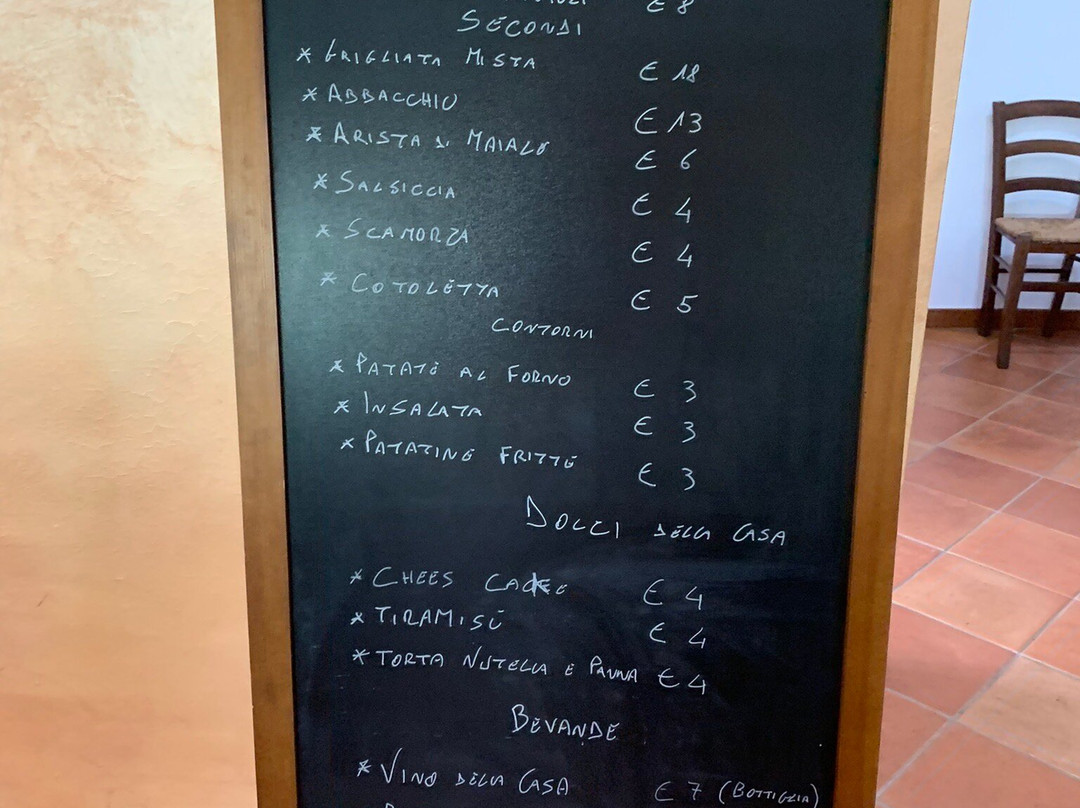 € 8
SECONDI
* GRIGLIATA MISTA € 18
* ABBACCHIO € 13
* ARISTA DI MAIALE € 6
* SALSICCIA € 4
* SCAMORZA € 4
* COTOLETTA € 5
CONTORNI
* PATATE AL FORNO € 3
* INSALATA € 3
* PATATINE FRITTE € 3
DOLCI DELLA CASA
* CHEES CACKE € 4
* TIRAMISÙ € 4
* TORTA NUTELLA E PANNA € 4
BEVANDE
* VINO DELLA CASA € 7 (BOTTIGLIA)